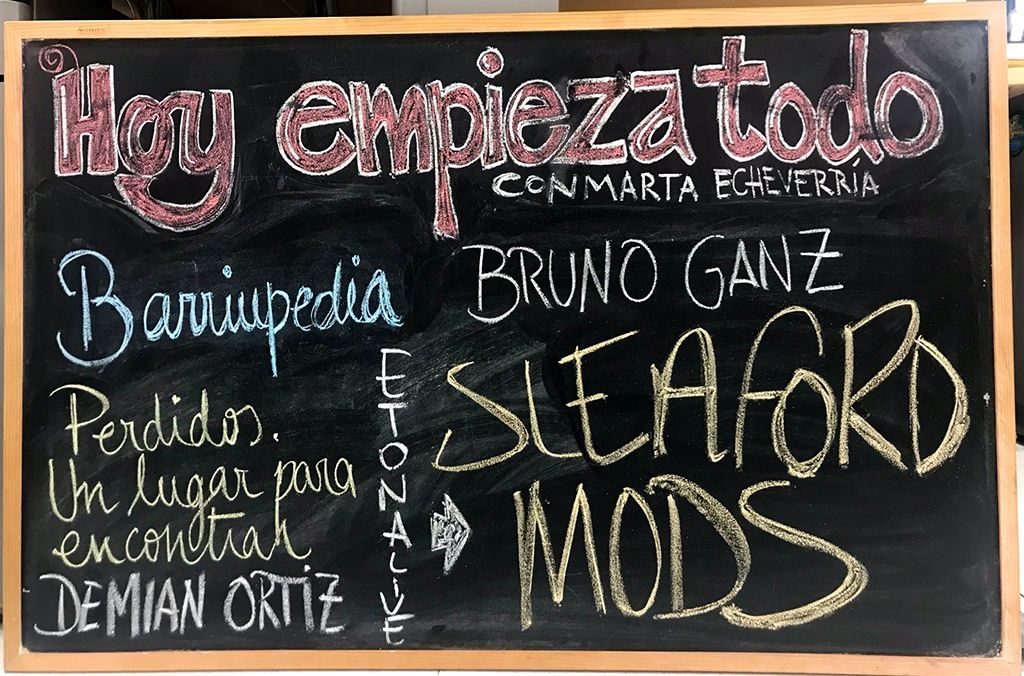 Hoy empieza todo
CON MARTA ECHEVERRÍA
Barriupedia
BRUNO GANZ
Perdidos.
Un lugar para
encontrar
DEMIAN ORTIZ
ETONALIVE
SLEAFORD
MODS